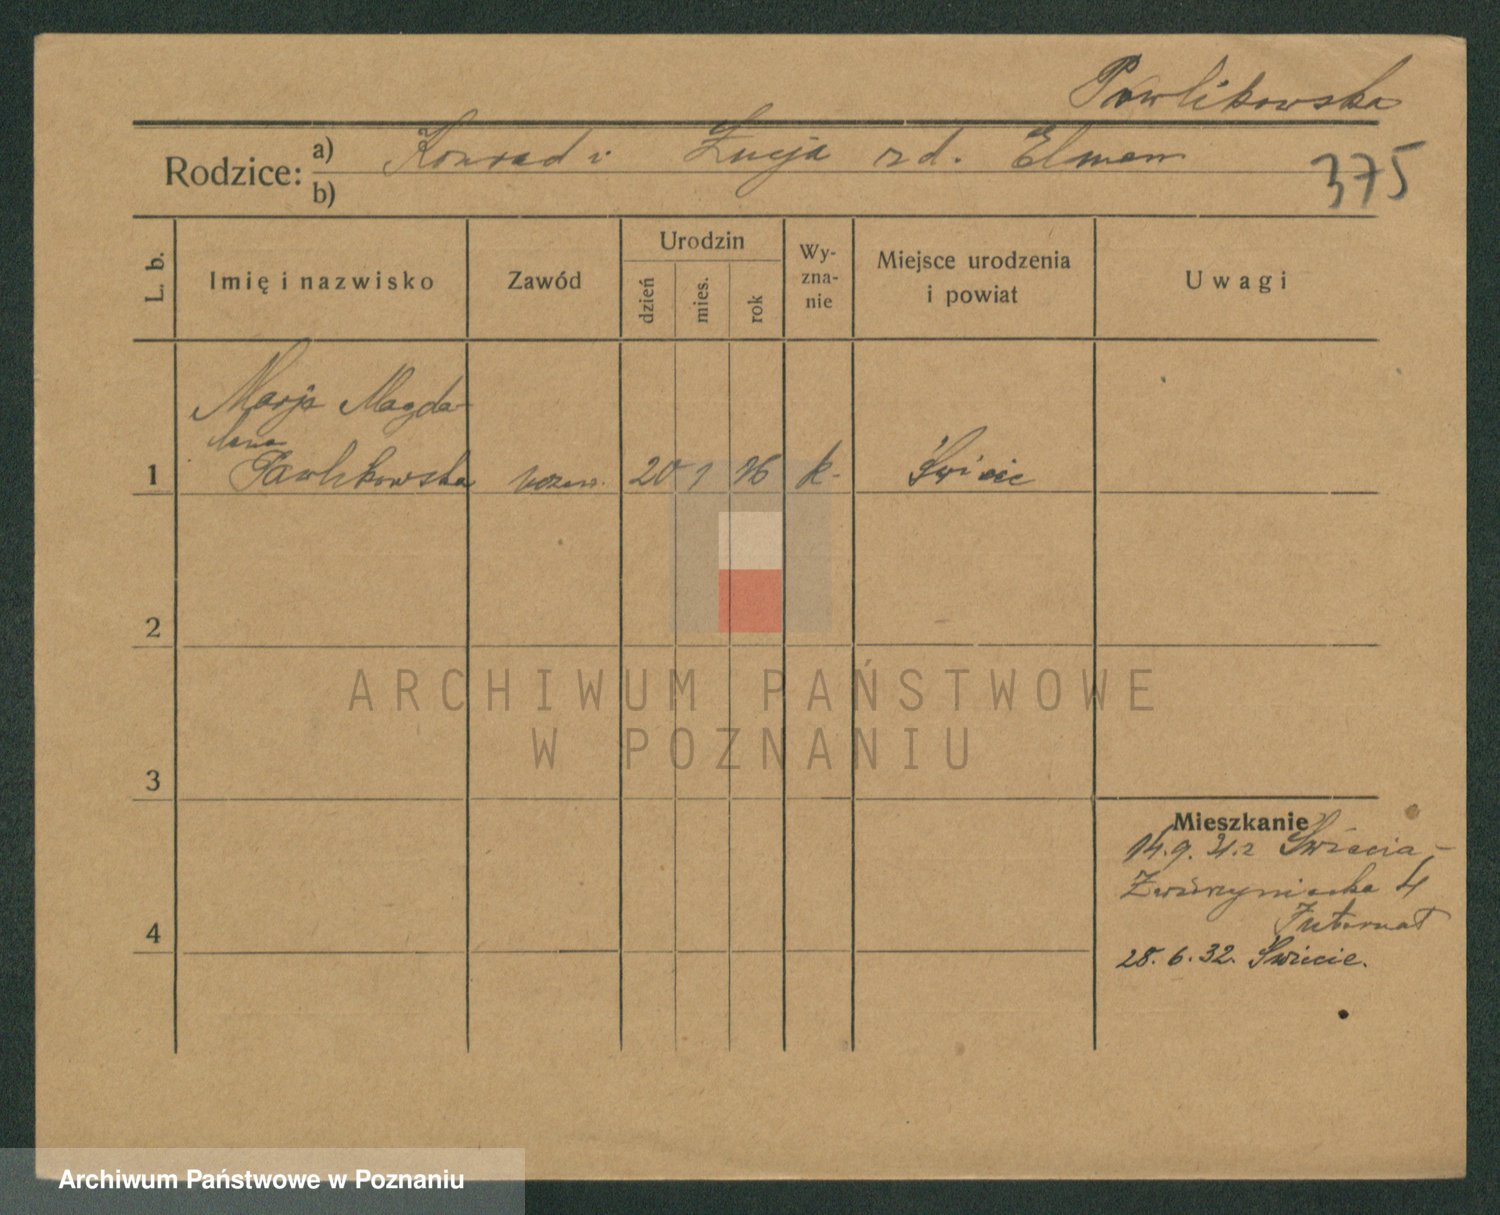 Pawlikowska
Rodzice: a) Konrad i Łucja zd. Elman
b)
375
L. b.
Imię i nazwisko
Zawód
Urodzin
dzień
mies.
rok
Wy-
zna-
nie
Miejsce urodzenia
i powiat
Uwagi
Marja Magda-
lena
1 Pawlikowska uczen. 20 1 16 k. Świecie
2
ARCHIWUM PAŃSTWOWE
W POZNANIU
3
Mieszkanie
14.9.31. z Świecia -
Zwierzyniecka 4
Internat
4
28.6.32. Świecie.
Archiwum Państwowe w Poznaniu